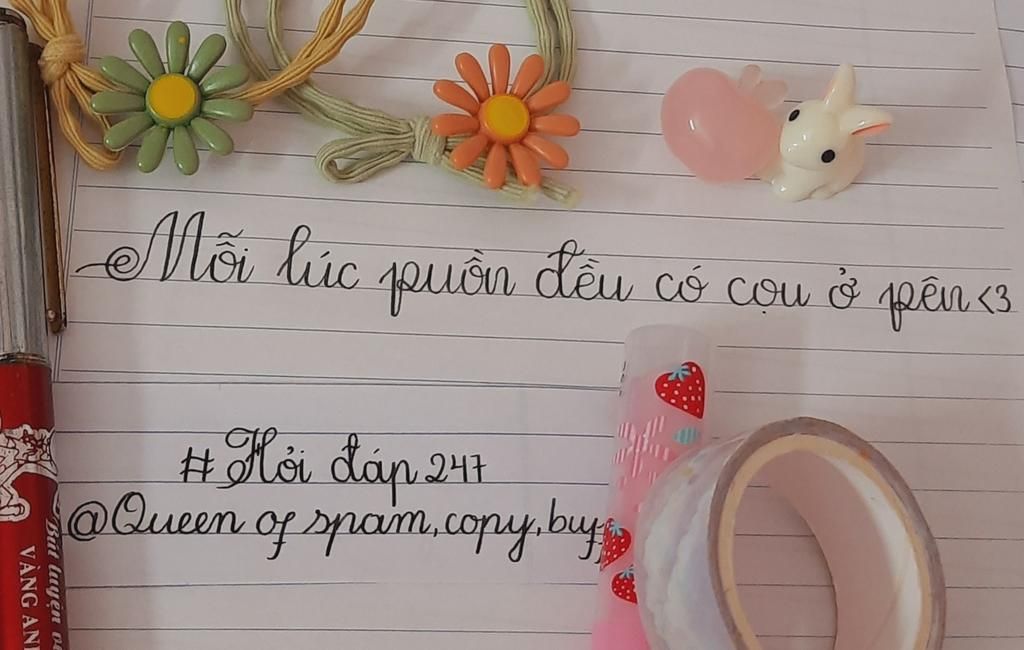 Mỗi lúc puồn đều có cọu ở pên <3
#Hỏi đáp 247
@Queen of spam, copy, buff
Bút luyện
VÀNG ANH